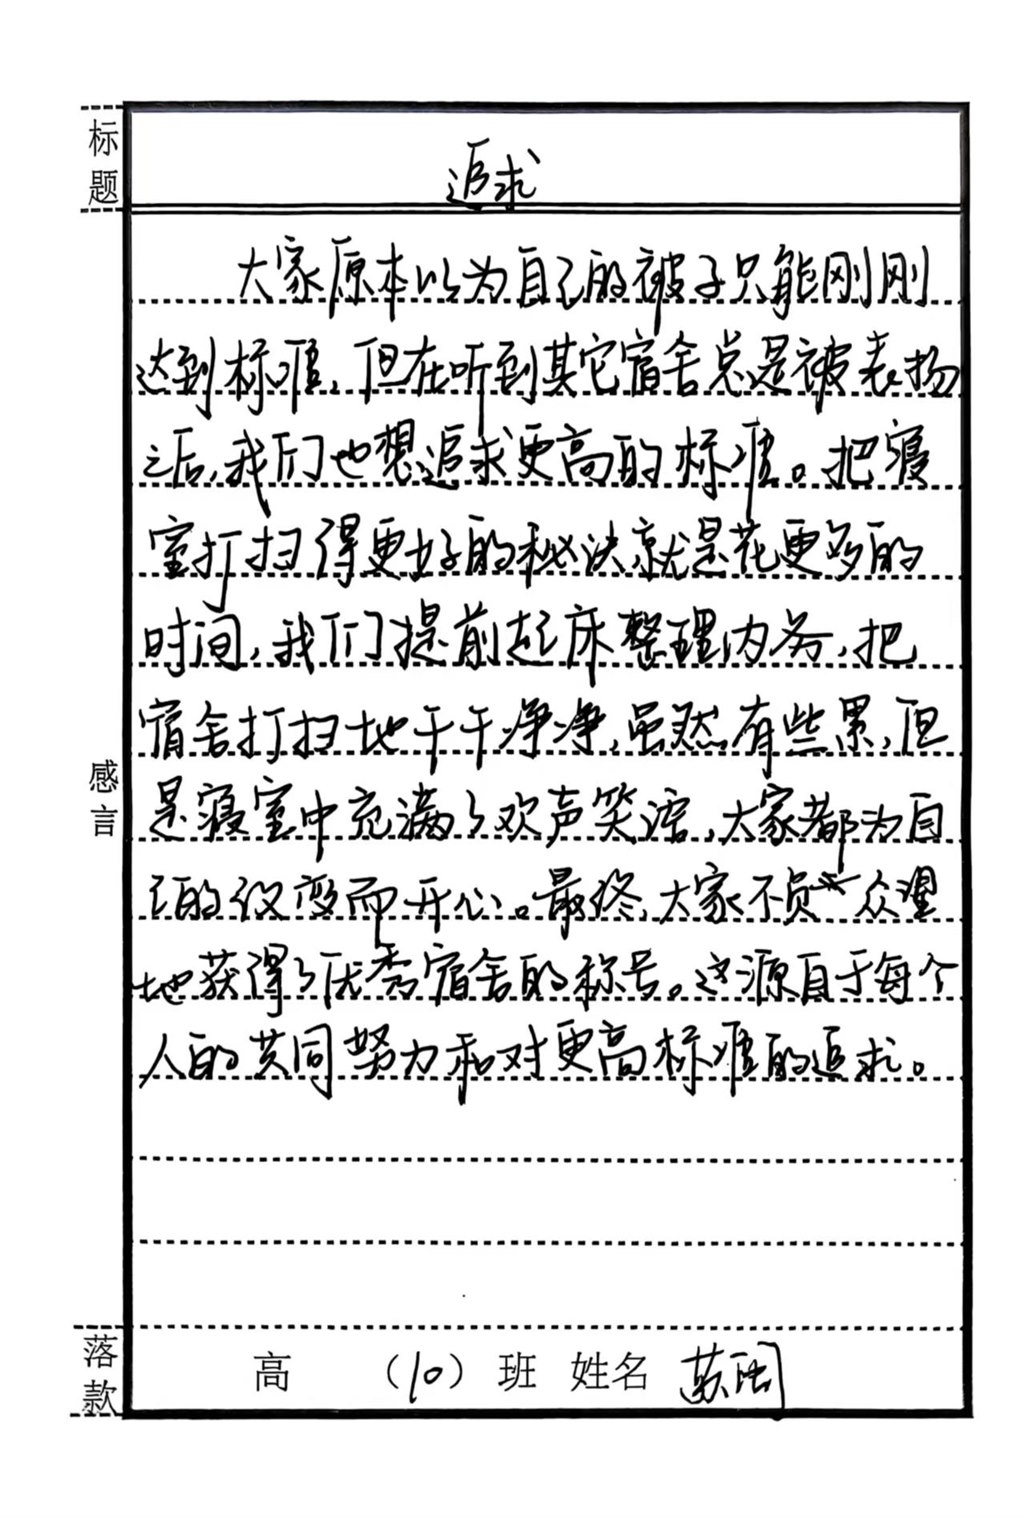 标题
追求
大家原本以为自己的被子只能刚刚
达到标准，但在听到其它宿舍总是被表扬
之后，我们也想追求更高的标准。把寝
室打扫得更好的秘诀就是花更多的
时间，我们提前起床整理内务，把
宿舍打扫地干干净净，虽然有些累，但
感言
是寝室中充满了欢声笑语，大家都为自
己的改变而开心。最终，大家不负众望
地获得了优秀宿舍的称号。这源自于每个
人的共同努力和对更高标准的追求。
落款
高 （10）班 姓名 苏